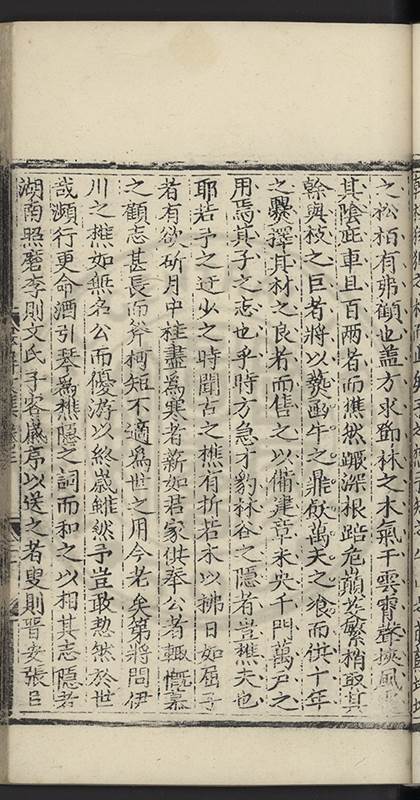 之松栢有弗顧也蓋方求鄧林之木氣干雲霄聲撼風
其陰庇車且百兩者而樵然蹶深根踣危巔芟繁梢取其
榦與枝之巨者將以爨函牛之鼎飲萬夫之飱而供十年
之爨擇其材之良者而售之以備建章未央千門萬戶之
用焉其子之志也乎時方急才豹林谷之隱者豈樵夫也
耶若予之迂少之時聞古之樵有折若木以拂日如屈子
者有欲斫月中桂盡為寒者薪如君家供奉公者輒慨慕
之顧志甚長而斧柯短不適為世之用今老矣第將問伊
川之樵如無名公而優游以終歲雖然予豈敢恝然於世
哉瀕行更命酒引琴為樵隱之詞而和之以相其志隱者
湖南照磨李則文氏予客歲序以送之者叟則晉安張臣